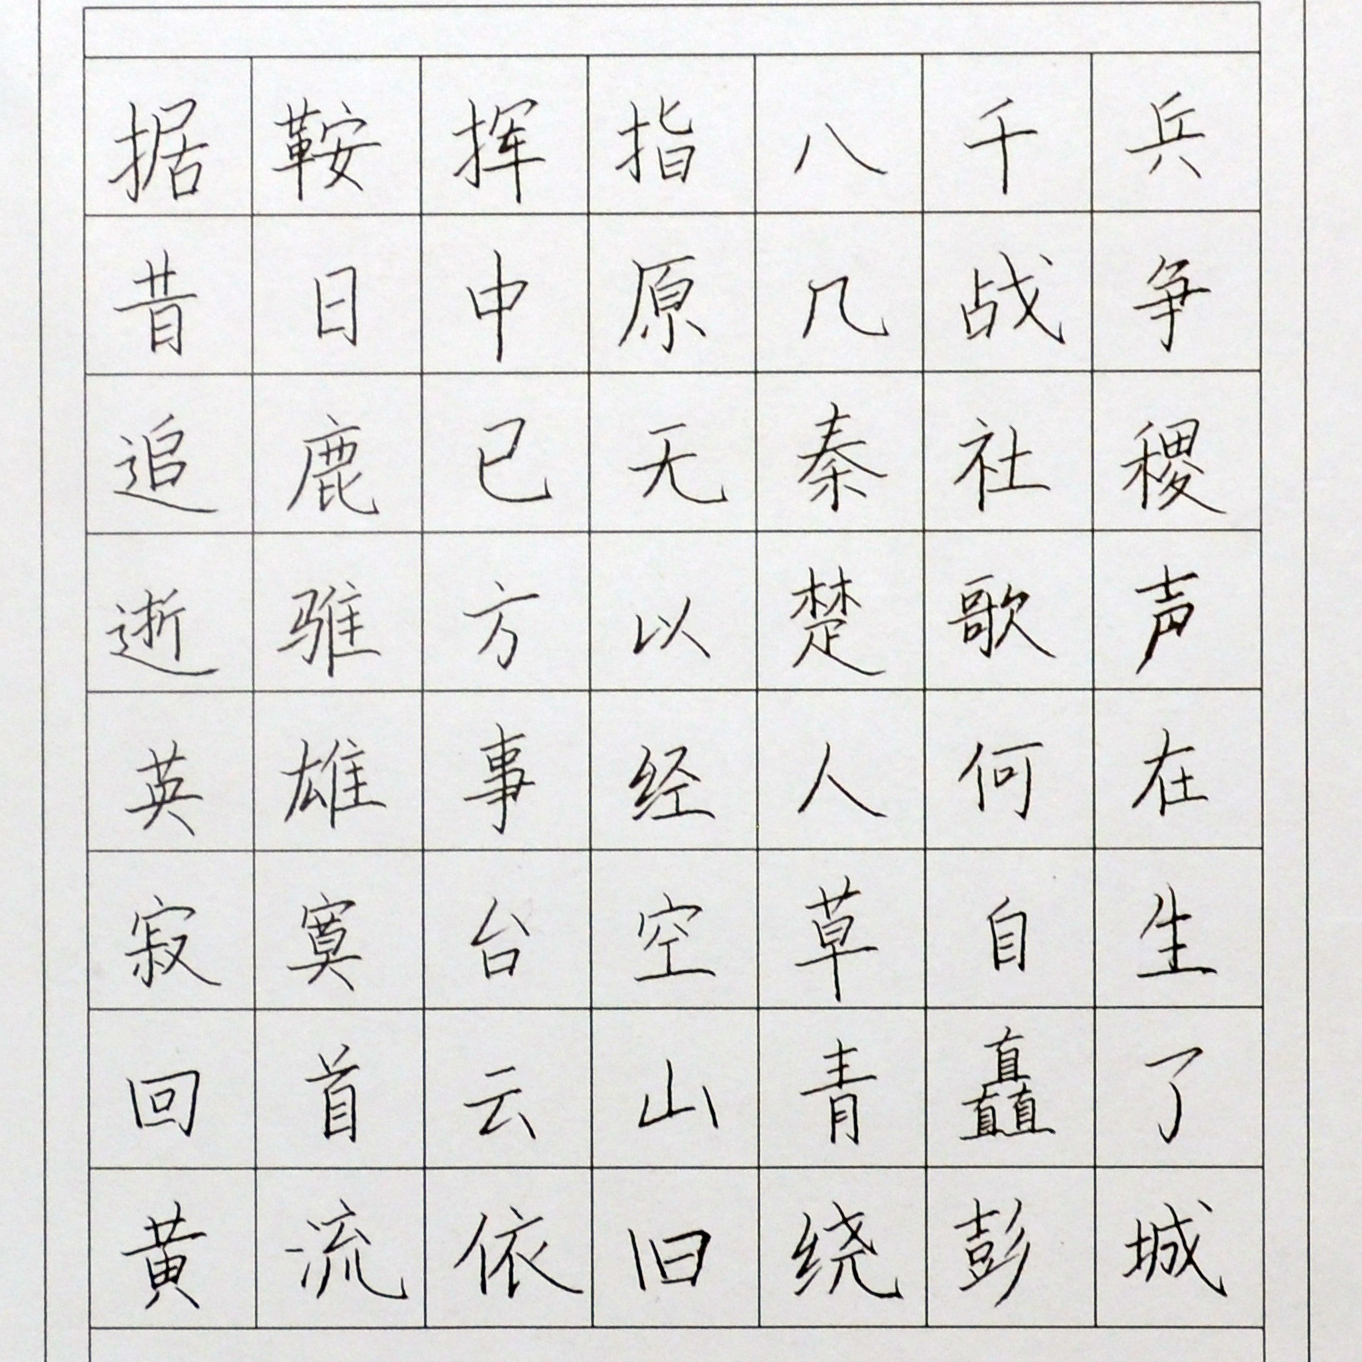 据鞍挥指八千兵
昔日中原几战争
追鹿已无秦社稷
逝骓方以楚歌声
英雄事经人何在
寂寞台空草自生
回首云山青矗了
黄流依旧绕彭城